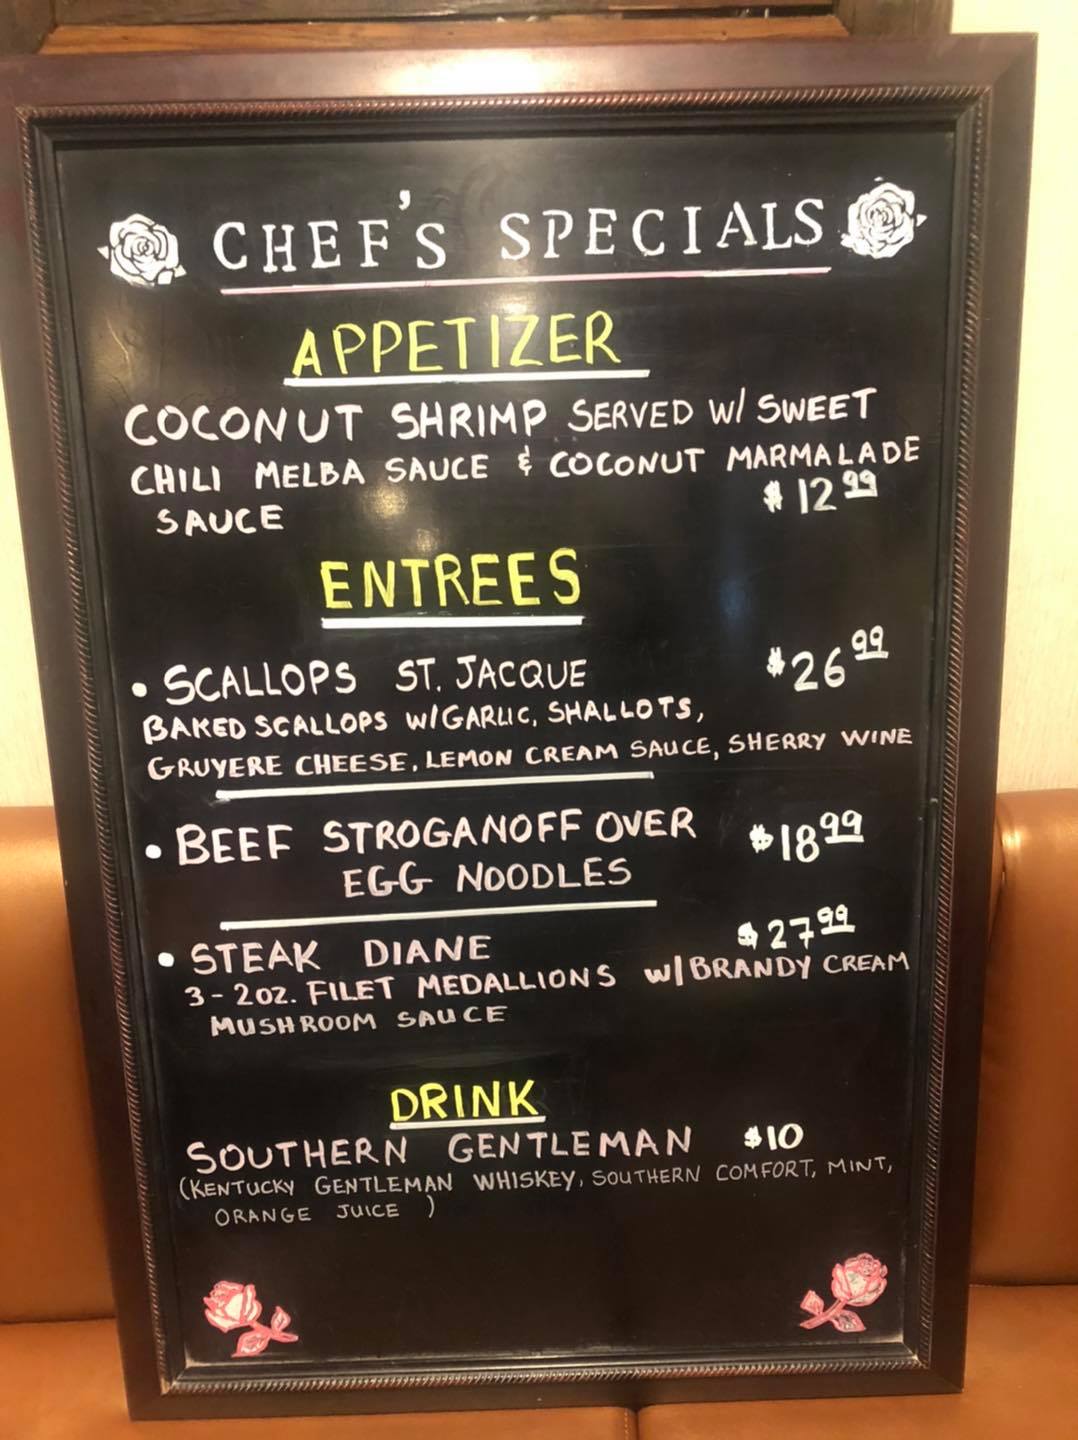 CHEF'S SPECIALS
APPETIZER
COCONUT SHRIMP SERVED W/ SWEET
CHILI MELBA SAUCE & COCONUT MARMALADE
SAUCE $12.99
ENTREES
• SCALLOPS ST. JACQUE $26.99
BAKED SCALLOPS W/GARLIC, SHALLOTS,
GRUYERE CHEESE, LEMON CREAM SAUCE, SHERRY WINE
• BEEF STROGANOFF OVER $18.99
EGG NOODLES
• STEAK DIANE $27.99
3-2OZ. FILET MEDALLIONS W/BRANDY CREAM
MUSHROOM SAUCE
DRINK
SOUTHERN GENTLEMAN $10
(KENTUCKY GENTLEMAN WHISKEY, SOUTHERN COMFORT, MINT,
ORANGE JUICE )